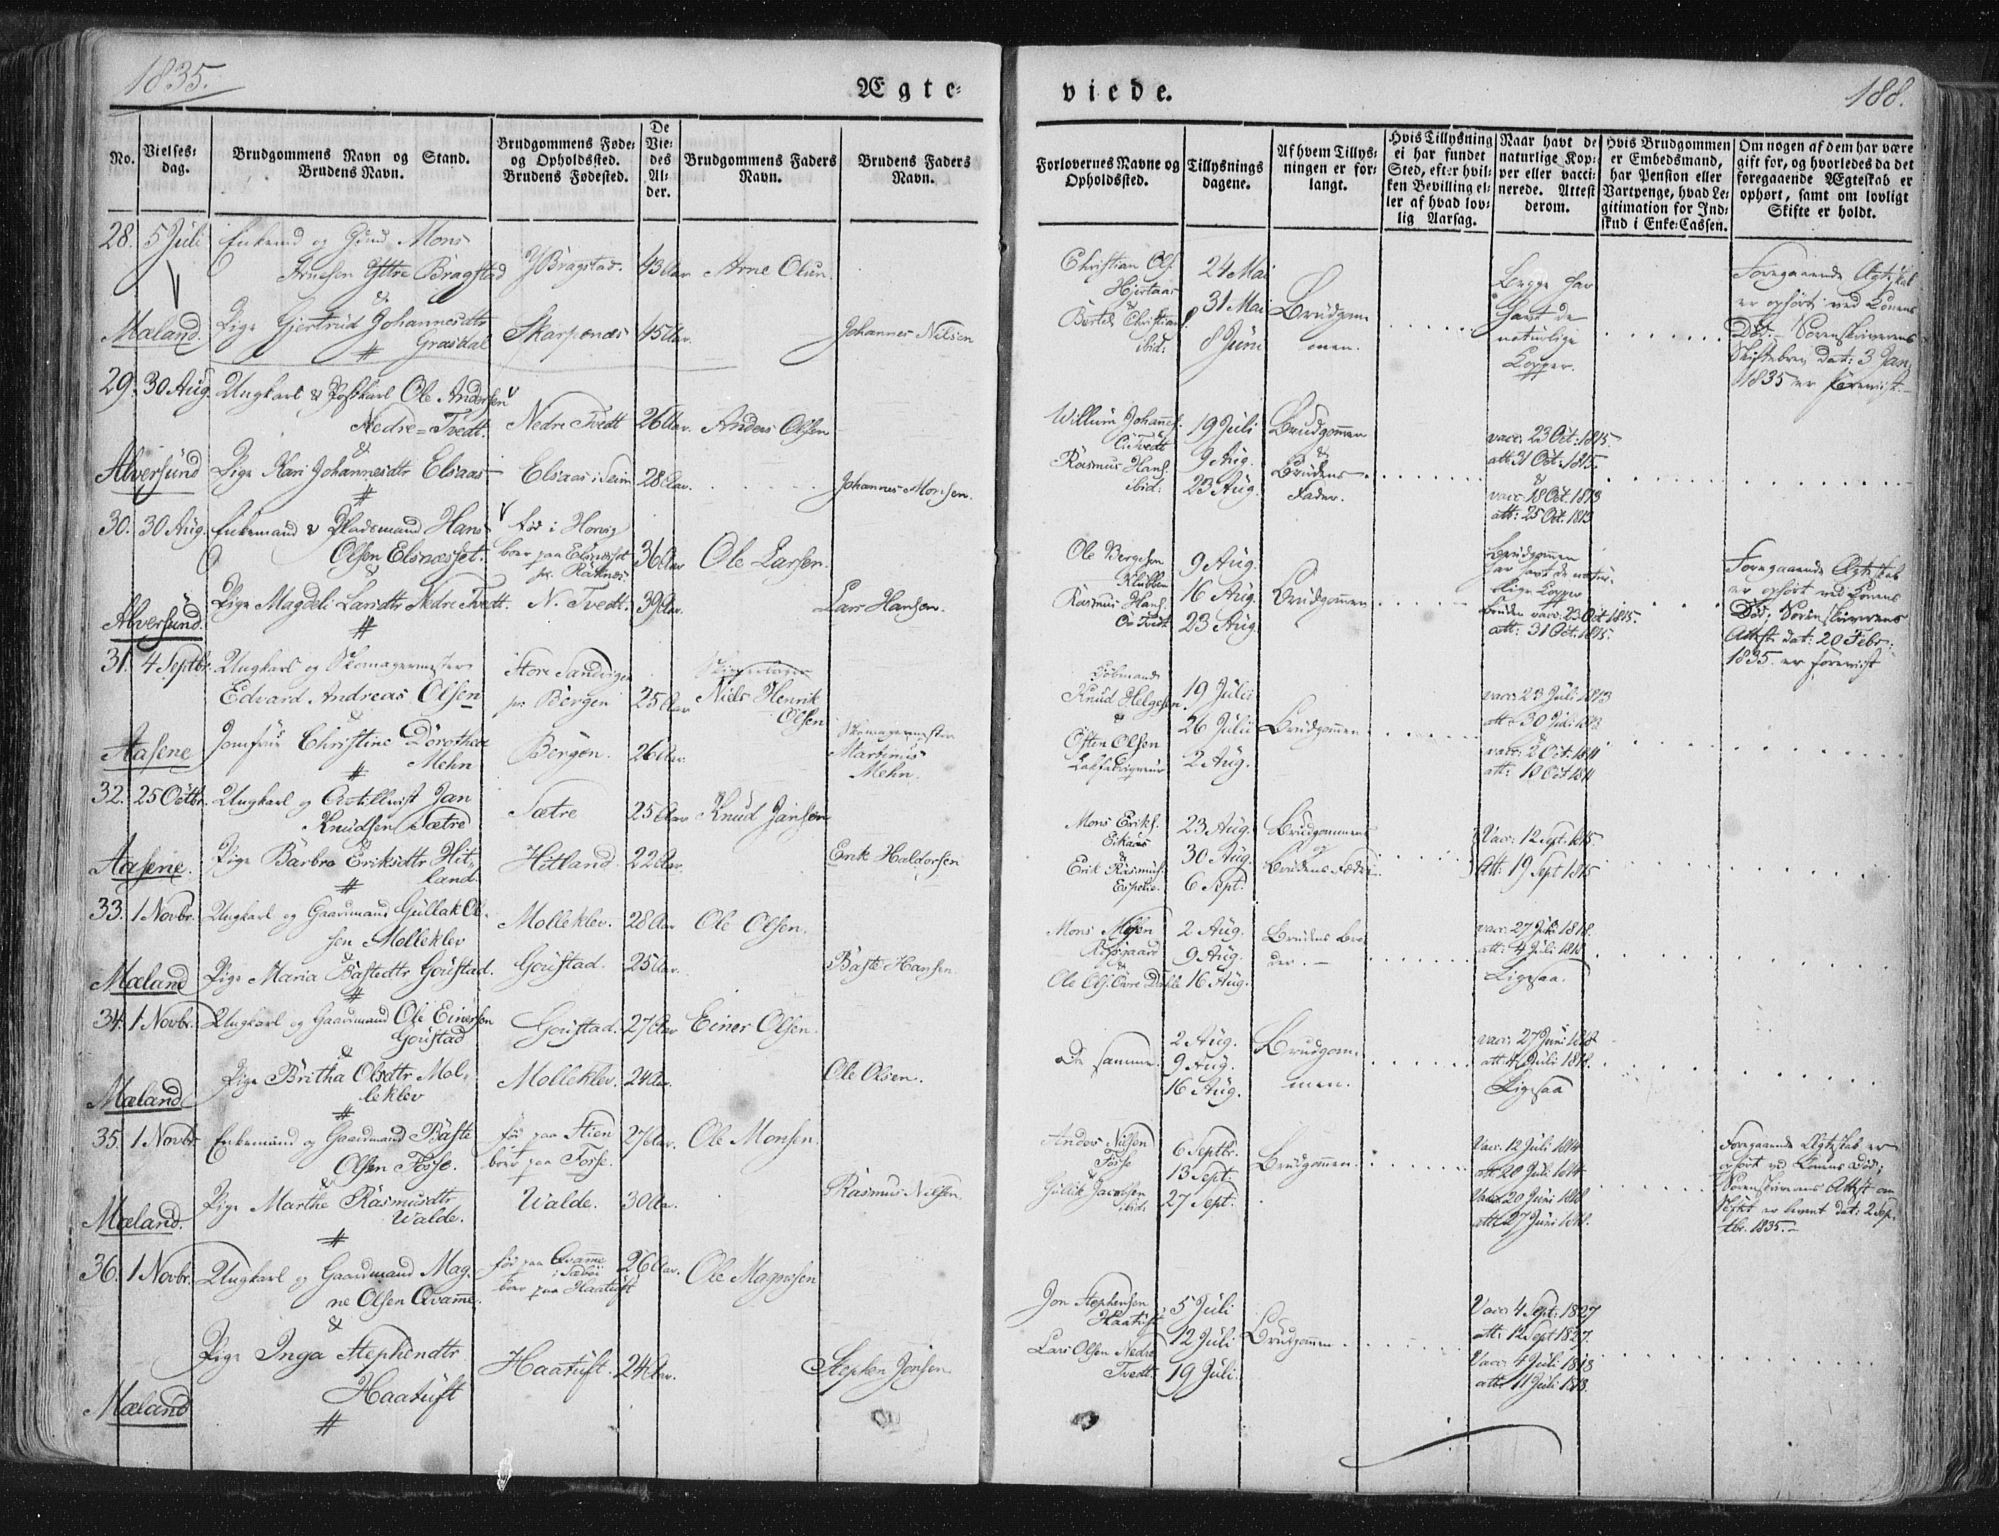 1835.
Ægte-
viede.
188.
No.
Vielses-
dag.
Brudgommens Navn og Stand.
Brudens Navn.
Brudgommens Føde-
og Opholdssted.
Brudens Fødested.
De
Vie-
des
Al-
der.
Brudgommens Faders
Navn.
Brudens Faders
Navn.
Forlovernes Navne og
Opholdssted.
Tillysnings
dagene.
Af hvem Tillys-
ningen er for-
langt.
Hvis Tillysning
ei har fundet
Sted, efter hvil-
ken Bevilling el-
ler af hvad lov-
lig Aarsag.
Naar havt de
naturlige Kop-
per eller vacci-
nerede. Attest
derom.
Hvis Brudgommen
er Embedsmand,
har Pension eller
Vartpenge, hvad Le-
gitimation for Ind-
skud i Enke-Cassen.
Om nogen af dem har være
gift for, og hvorledes da det
foregaaende Ægteskab er
ophørt, samt om lovligt
Skifte er holdt.
28. 5 Juli Enkemd og Gmd Mons
Arnesen Yttre Bragstad
Y Bragstad. 43 Aar Arne Olsen.
&
Mæland. Pige Gjertrud Johannesdtr
Grasdal
Skarpenæs 45 Aar. Johannes Nilsen
Christian Ols.
Hjertaas
&
Bertel Christian
ibid:
24 Mai
31 Mai
8 Juni
Brudgom
men.
Begge har
havt de
naturlige
Kopper.
Foregaaende Ægteskab
er ophørt ved Konens
Død. Sorenskriverens
Skiftebrev dat: 3 Jan.
1835 er forevist.
29. 30 Aug. Ungkarl & Postkarl Ole Andersen
Nedre-Tvedt.
Nedre Tvedt 26 Aar. Anders Olsen
&
Alversund Pige Kari Johannesdtr Elsaas
Elsaas i Seim 28 Aar. Johannes Monsen.
Willum Johannes.
Rasmus Hans.
ibid:
19 Juli
9 Aug.
23 Aug.
Brudgommen
&
Brudens
Fader.
vacc: 23 Oct: 1815
att: 31 Oct: 1815.
&
vacc: 18 Oct. 1813
att: 25 Oct. 1813
30. 30 Aug. Enkemand & Pladsmand Hans
Olsen Elsnæsset.
&
fød i
boer paa Elsnæsset
36 Aar Ole Larsen.
Alversund. Pige Magdeli Larsdtr Nedre Tvedt. N. Tvedt. 39 Aar. Lars Hansen.
Ole Bergesen
Klubben
Rasmus Hans.
Tvedt
9 Aug.
16 Aug.
23 Aug.
Brudgommen
Brudgommen
har havt de natur-
lige Kopper
Bruden vacc: 23 Oct 1815.
att: 31 Oct. 1815.
Foregaaende Ægteskab
er ophørt ved Konens
Død; Sorenskriverens
Attest dat: 20 Febr:
1835. er forevist
31. 4 Septbr. Ungkarl og Skomagermester
Edvard Andreas Olsen
&
Store Sandvigen
pr. Bergen 25 Aar
Niels Henrik
Olsen
Aasene Jomfrue Christine Dorothea
Mehn
Bergen. 26 Aar.
Skomagermester
Martinus
Mehn.
Kjøbmand
Knud Helgesen
&
Østen Olsen
19 Julii
26 Julii
2 Aug.
Brudgommen
vacc: 23 Juli 1813
att: 30 Juli 1813
&
vacc: 2 Oct. 1811
att: 10 Oct 1811
32. 25 Octbr. Ungkarl og Jan
Knudsen Sætre
&
Sætre 25 Aar Knud Jansen
Aasene. Pige Barbro Eriksdtr Hit-
land.
Hitland. 22 Aar. Erik Haldorsen
Mons Eriks.
Eikaas
&
Erik Rasmus.
Espetre.
23 Aug.
30 Aug.
6 Sept.
Brudgommen
og
Brudens Fader
Vacc: 12 Sept. 1815
Att: 19 Sept 1815
33. 1 Novbr. Ungkarl og Gaardmand Gullak Ol-
sen Molleklev
&
Molleklev. 28 Aar Ole Olsen.
Mæland Pige Maria Bastedtr Goustad. Goustad. 25 Aar. Baste Hansen
Mons
&
Ole Ols. Øvre Dahle
2 Aug.
9 Aug.
16 Aug.
Brudens Bro
der.
vacc: 27 Juni 1818.
att: 4 Juli 1818
Ligesaa.
34. 1 Novbr. Ungkarl og Gaardmand Ole Einersen
Goustad
&
Goustad. 27 Aar Einer Olsen.
Mæland Pige Britha Olsdtr Mol-
leklev
Molleklev. 24 Aar. Ole Olsen.
De samme.
2 Aug.
9 Aug.
16 Aug.
Brudgom-
men.
vacc: 27 Juni 1818
att: 4 Juli 1818.
Ligesaa
35. 1 Novbr. Enkemand og Gaardmand Baste
Olsen Fosse.
fød paa Stien
boer paa Fosse.
27 Aar. Ole Monsen.
Mæland. Pige Marthe Rasmusdtr
Walde.
Walde. 30 Aar. Rasmus Nilsen.
Anders Nilsen
Fosse
Gullik Jacobsen
ibid:
6 Septbr.
13 Sept:
27 Sept:
Brudgommen.
Vacc: 12 Juli 1814
att: 20 Juli 1814
Vacc: 20 Juni 1818
att: 27 Juni 1818.
Foregaaende Ægteskab er
ophørt ved Konens Død;
Sorenskriverens Attest om
Skiftet er levert dat: 2 Sep-
tbr. 1835.
36. 1 Novbr. Ungkarl og Gaardmand Mag-
ne Olsen Qvamme.
&
fød paa Qvamme
i Sæbøe
boer paa Haatuft
26 Aar. Ole Magnesen
Pige Inga Stephensdtr
Haatuft
Haatuft. 24 Aar. Stephen Jonsen
Mæland
Jon Stephensen
Haatuft
Lars Olsen Nedre
Tvedt.
5 Juli
12 Juli
19 Juli.
Brudgommen
Vacc: 4 Sept: 1827
att: 12 Sept 1827.
Vacc: 4 Juli 1818
att: 11 Juli 1818.